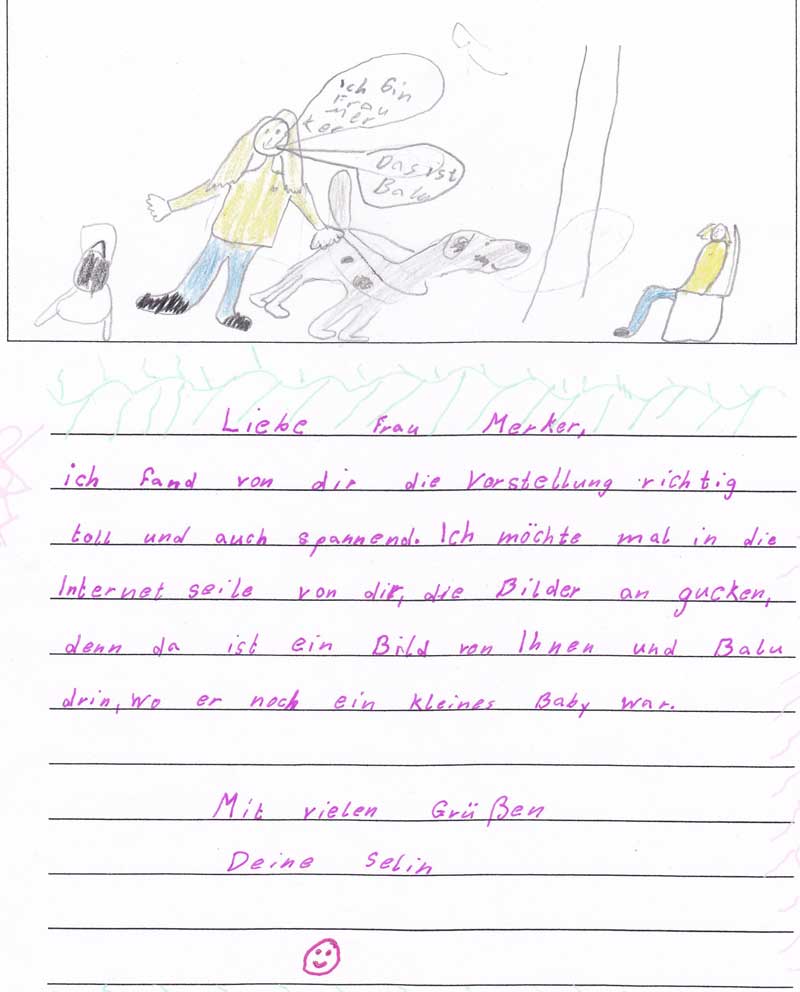 Ich bin
Frau
Mer
ker
Das ist
Balu
Liebe Frau Merker,
ich fand von dir die Vorstellung richtig
toll und auch spannend. Ich möchte mal in die
Internet seite von dir, die Bilder an gucken,
denn da ist ein Bild von Ihnen und Balu
drin, wo er noch ein kleines Baby war.
Mit vielen Grüßen
Deine Selin